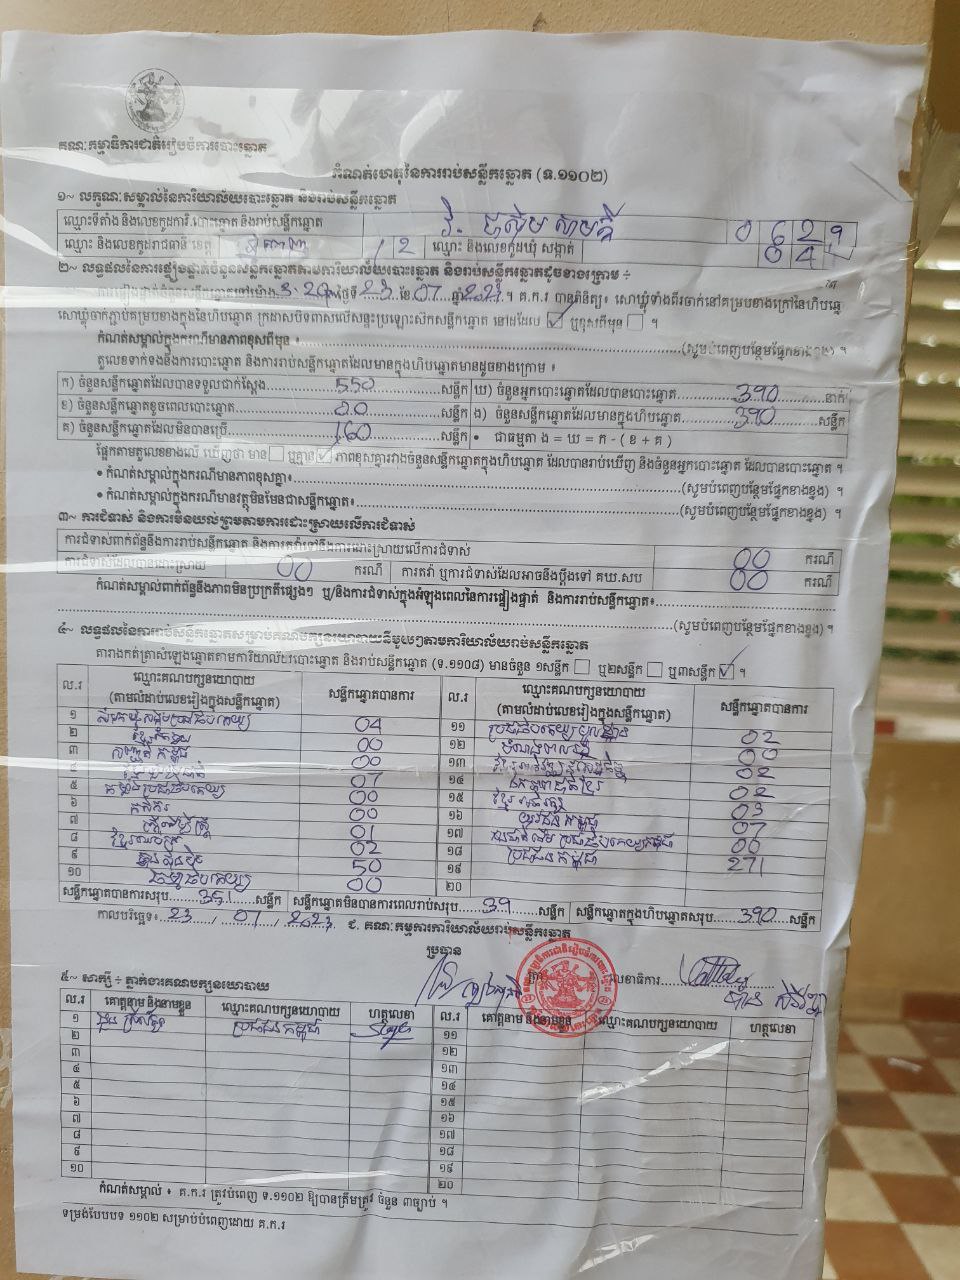 គណៈកម្មាធិការជាតិរៀបចំការបោះឆ្នោត
កំណត់ហេតុនៃការរាប់សន្លឹកឆ្នោត (ទ.១១០២)
១~ លក្ខណៈសម្គាល់នៃការិយាល័យបោះឆ្នោត និងរាប់សន្លឹកឆ្នោត
ឈ្មោះទីតាំង និងលេខកូដការិ.បោះឆ្នោត និងរាប់សន្លឹកឆ្នោត វិ. 0629
ឈ្មោះ និងលេខកូដរាជធានី ខេត្ត ភ្នំពេញ 12 ឈ្មោះ និងលេខកូដឃុំ សង្កាត់ 04
២~ លទ្ធផលនៃការផ្ទៀងផ្ទាត់ចំនួនសន្លឹកឆ្នោតតាមការិយាល័យបោះឆ្នោត និងរាប់សន្លឹកឆ្នោតដូចខាងក្រោម ÷
ការផ្ទៀងផ្ទាត់ចំនួនសន្លឹកឆ្នោតនៅម៉ោង 3:20 ថ្ងៃទី 23 ខែ 07 ឆ្នាំ 2023 ។ គ.ក.រ បានពិនិត្យ៖ សោឃ្លុំទាំងពីរចាក់នៅគម្របខាងក្រៅនៃហិបឆ្នោត
សោឃ្លុំចាក់ភ្ជាប់គម្របខាងក្នុងនៃហិបឆ្នោត ក្រដាសបិទពាសលើសន្ទះប្រឡោះស៊កសន្លឹកឆ្នោត នៅដដែល ☑ ឬខុសពីមុន ☐ ។
កំណត់សម្គាល់ក្នុងករណីមានភាពខុសពីមុន ៖ (សូមបំពេញបន្ថែមផ្នែកខាងខ្នង) ។
តួលេខទាក់ទងនឹងការបោះឆ្នោត និងការរាប់សន្លឹកឆ្នោតដែលមានក្នុងហិបឆ្នោតមានដូចខាងក្រោម ៖
ក) ចំនួនសន្លឹកឆ្នោតដែលបានទទួលជាក់ស្តែង 550 សន្លឹក ឃ) ចំនួនអ្នកបោះឆ្នោតដែលបានបោះឆ្នោត 390 នាក់
ខ) ចំនួនសន្លឹកឆ្នោតខូចពេលបោះឆ្នោត 00 សន្លឹក ង) ចំនួនសន្លឹកឆ្នោតដែលមានក្នុងហិបឆ្នោត 390 សន្លឹក
គ) ចំនួនសន្លឹកឆ្នោតដែលមិនបានប្រើ 160 សន្លឹក • ជាធម្មតា ង = ឃ = ក - ( ខ + គ )
ផ្អែកតាមតួលេខខាងលើ ឃើញថា មាន ☐ ឬគ្មាន ☑ ភាពខុសគ្នារវាងចំនួនសន្លឹកឆ្នោតក្នុងហិបឆ្នោត ដែលបានរាប់ឃើញ និងចំនួនអ្នកបោះឆ្នោត ដែលបានបោះឆ្នោត ។
• កំណត់សម្គាល់ក្នុងករណីមានភាពខុសគ្នា៖ (សូមបំពេញបន្ថែមផ្នែកខាងខ្នង) ។
• កំណត់សម្គាល់ក្នុងករណីមានវត្ថុមិនមែនជាសន្លឹកឆ្នោត៖ (សូមបំពេញបន្ថែមផ្នែកខាងខ្នង) ។
៣~ ការជំទាស់ និងការមិនយល់ព្រមតាមការដោះស្រាយលើការជំទាស់
ការជំទាស់ពាក់ព័ន្ធនឹងការរាប់សន្លឹកឆ្នោត និងការតវ៉ាទៅនឹងការដោះស្រាយលើការជំទាស់ 00 ករណី
ការជំទាស់ដែលបានដោះស្រាយ 00 ករណី ការតវ៉ា ឬការជំទាស់ដែលអាចនឹងប្តឹងទៅ គឃ.សប 00 ករណី
កំណត់សម្គាល់ពាក់ព័ន្ធនឹងភាពមិនប្រក្រតីផ្សេងៗ ឬ/និងការជំទាស់ក្នុងអំឡុងពេលនៃការផ្ទៀងផ្ទាត់ និងការរាប់សន្លឹកឆ្នោត៖
(សូមបំពេញបន្ថែមផ្នែកខាងខ្នង) ។
៤~ លទ្ធផលនៃការរាប់សន្លឹកឆ្នោតសម្រាប់គណបក្សនយោបាយនីមួយៗតាមការិយាល័យរាប់សន្លឹកឆ្នោត
តារាងកត់ត្រាសំឡេងឆ្នោតតាមការិយាល័យបោះឆ្នោត និងរាប់សន្លឹកឆ្នោត (ទ.១១០៨) មានចំនួន ១សន្លឹក ☐ ឬ២សន្លឹក ☐ ឬ៣សន្លឹក ☑ ។
ល.រ ឈ្មោះគណបក្សនយោបាយ (តាមលំដាប់លេខរៀងក្នុងសន្លឹកឆ្នោត) សន្លឹកឆ្នោតបានការ ល.រ ឈ្មោះគណបក្សនយោបាយ (តាមលំដាប់លេខរៀងក្នុងសន្លឹកឆ្នោត) សន្លឹកឆ្នោតបានការ
១ 04 ១១ ប្រជាធិបតេយ្យមូលដ្ឋាន 02
២ 00 ១២ 00
៣ 00 ១៣ 02
៤ 07 ១៤ ឯកភាពជាតិខ្មែរ 02
៥ កម្លាំងប្រជាធិបតេយ្យ 00 ១៥ 03
៦ កសិករ 00 ១៦ យុវជនកម្ពុជា 07
៧ 01 ១៧ 00
៨ 02 ១៨ ប្រជាជនកម្ពុជា 271
៩ ហ៊្វុនស៊ិនប៉ិច 50 ១៩
១០ 00 ២០
សន្លឹកឆ្នោតបានការសរុប 351 សន្លឹក សន្លឹកឆ្នោតមិនបានការពេលរាប់សរុប 39 សន្លឹក សន្លឹកឆ្នោតក្នុងហិបឆ្នោតសរុប 390 សន្លឹក
កាលបរិច្ឆេទ៖ 23 / 07 / 2023 ៩. គណៈកម្មការការិយាល័យរាប់សន្លឹកឆ្នោត
ប្រធាន លេខាធិការ
៥~ សាក្សី ÷ ភ្នាក់ងារគណបក្សនយោបាយ
ល.រ គោត្តនាម និងនាមខ្លួន ឈ្មោះគណបក្សនយោបាយ ហត្ថលេខា ល.រ គោត្តនាម និងនាមខ្លួន ឈ្មោះគណបក្សនយោបាយ ហត្ថលេខា
១ ប្រជាជនកម្ពុជា ១១
២ ១២
៣ ១៣
៤ ១៤
៥ ១៥
៦ ១៦
៧ ១៧
៨ ១៨
៩ ១៩
១០ ២០
កំណត់សម្គាល់ ៖ គ.ក.រ ត្រូវបំពេញ ទ.១១០២ ឱ្យបានត្រឹមត្រូវ ចំនួន ៣ច្បាប់ ។
ទម្រង់បែបបទ ១១០២ សម្រាប់បំពេញដោយ គ.ក.រ